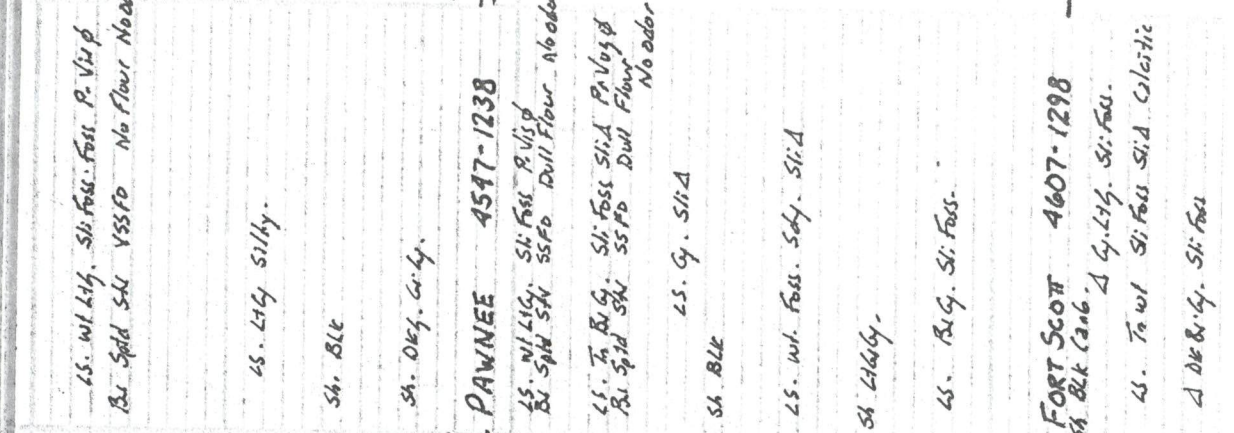 LS. Wt Ltg. Sli Foss. Foss P. Vis φ
Br Sptd Stn VSSFO No Flour No Odo
LS. Ltg Silty.
Sh. Blk
Sh. Dkg. Gr. Gy.
PAWNEE 4547-1238
LS. Wt Ltgy. Sli Foss P. Vis φ
Br Sptd Stn SSFO Dull Flour No odo
LS. Tn Br Gy. Sli Foss Sli Δ Pr Vug φ
Br Sptd Stn SSFO Dull Flour
No odor
LS. Gy. Sli Δ
Sh Blk
LS. Wt. Foss. Sdy. Sli Δ
Sh
LS. Br Gy. Sli Foss.
FORT SCOTT 4607-1298
Sh Blk Carb.
Δ Gy. Ltg. Sli Foss.
LS. Tn Wt Sli Foss Sli Δ Calcitic
Δ Dk Br Gy. Sli Foss